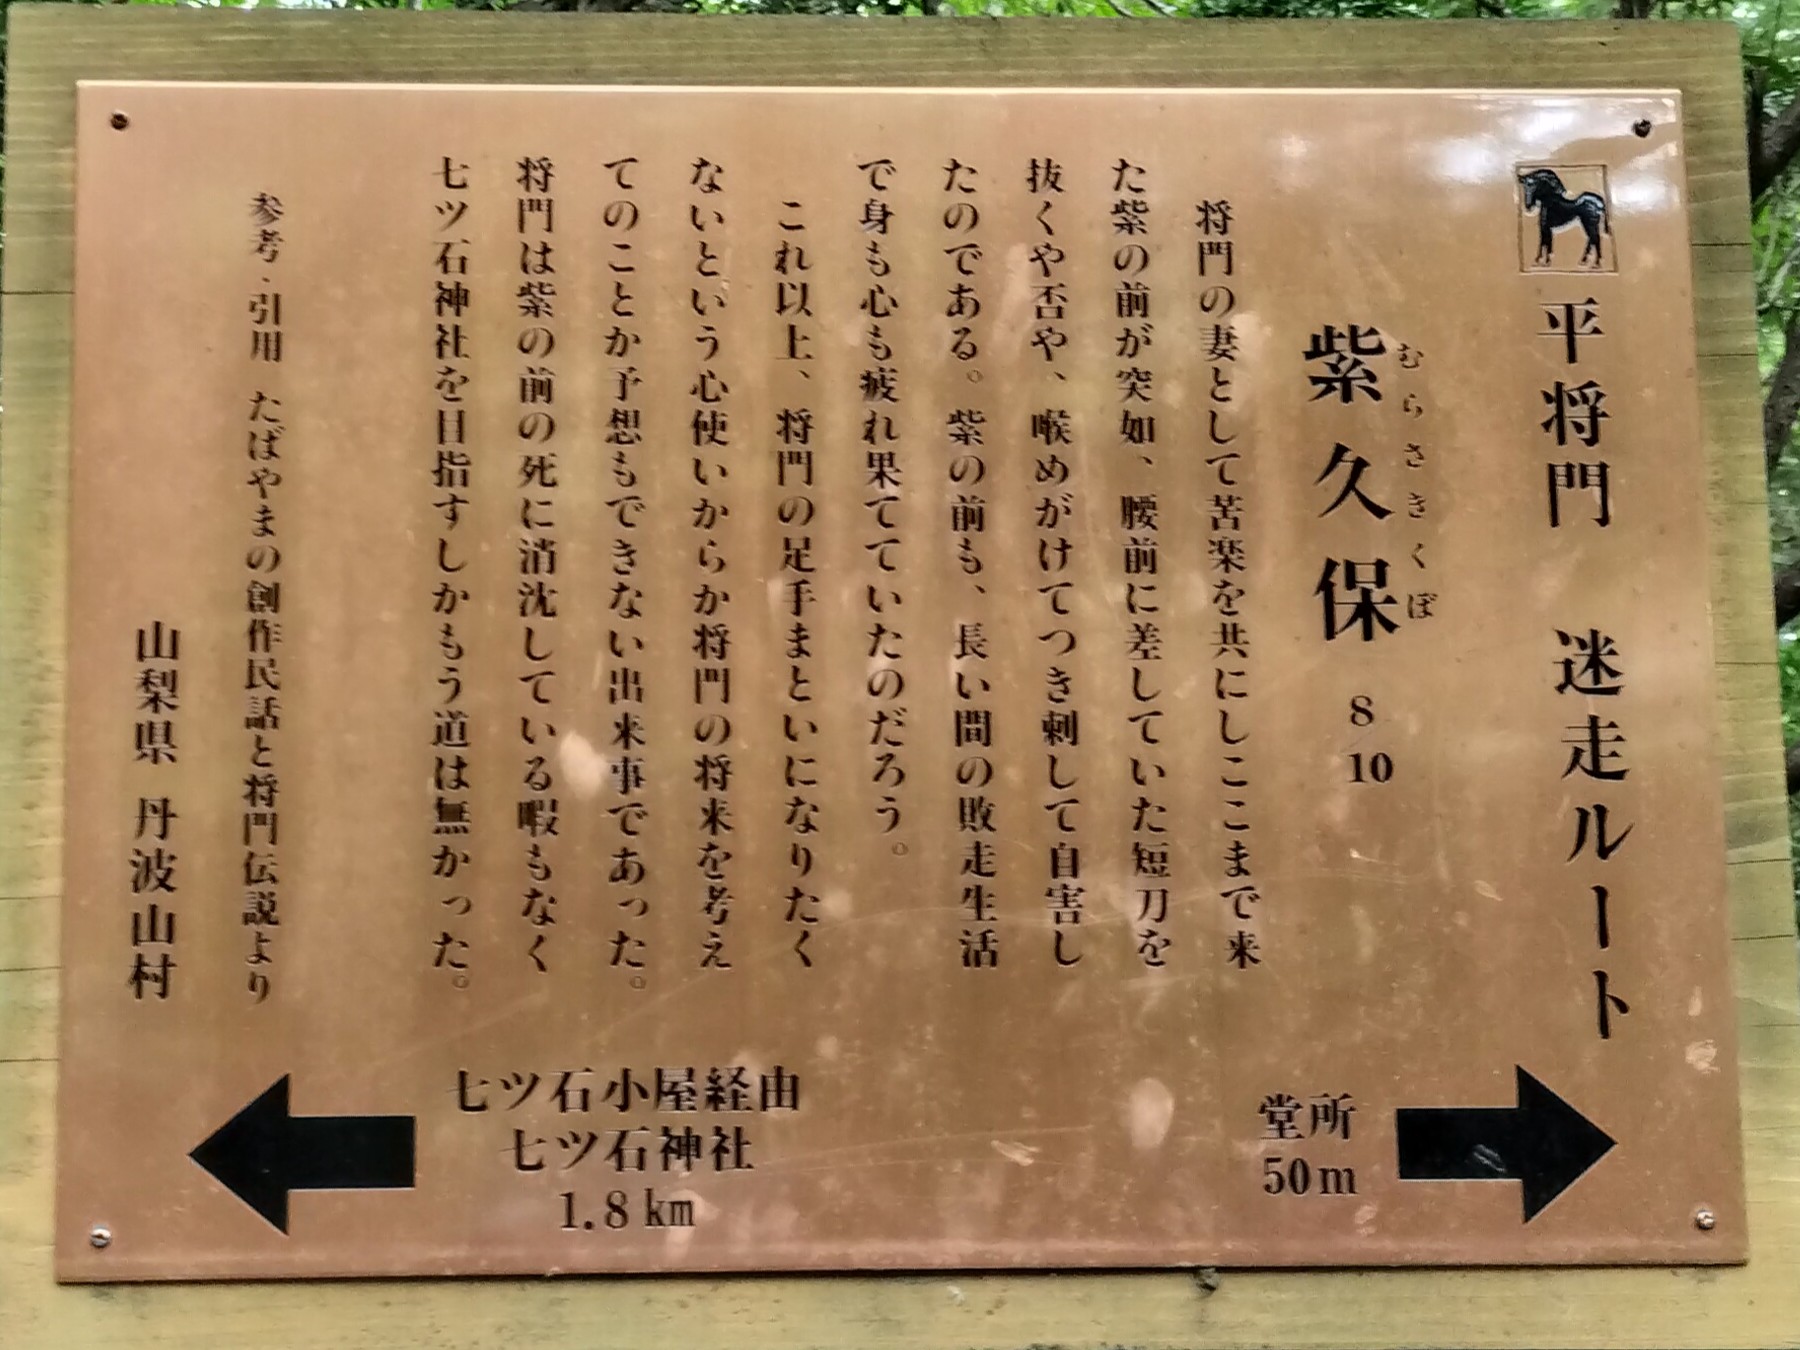 平将門 迷走ルート
むらさきくぼ
紫久保 8/10
将門の妻として苦楽を共にしここまで来
た紫の前が突如、腰前に差していた短刀を
抜くや否や、喉めがけてつき刺して自害し
たのである。紫の前も、長い間の敗走生活
で身も心も疲れ果てていたのだろう。
これ以上、将門の足手まといになりたく
ないという心使いからか将門の将来を考え
てのことか予想もできない出来事であった。
将門は紫の前の死に消沈している暇もなく
七ツ石神社を目指すしかもう道は無かった。
参考・引用 たばやまの創作民話と将門伝説より
山梨県 丹波山村
堂所
50m
七ツ石小屋経由
七ツ石神社
1.8km